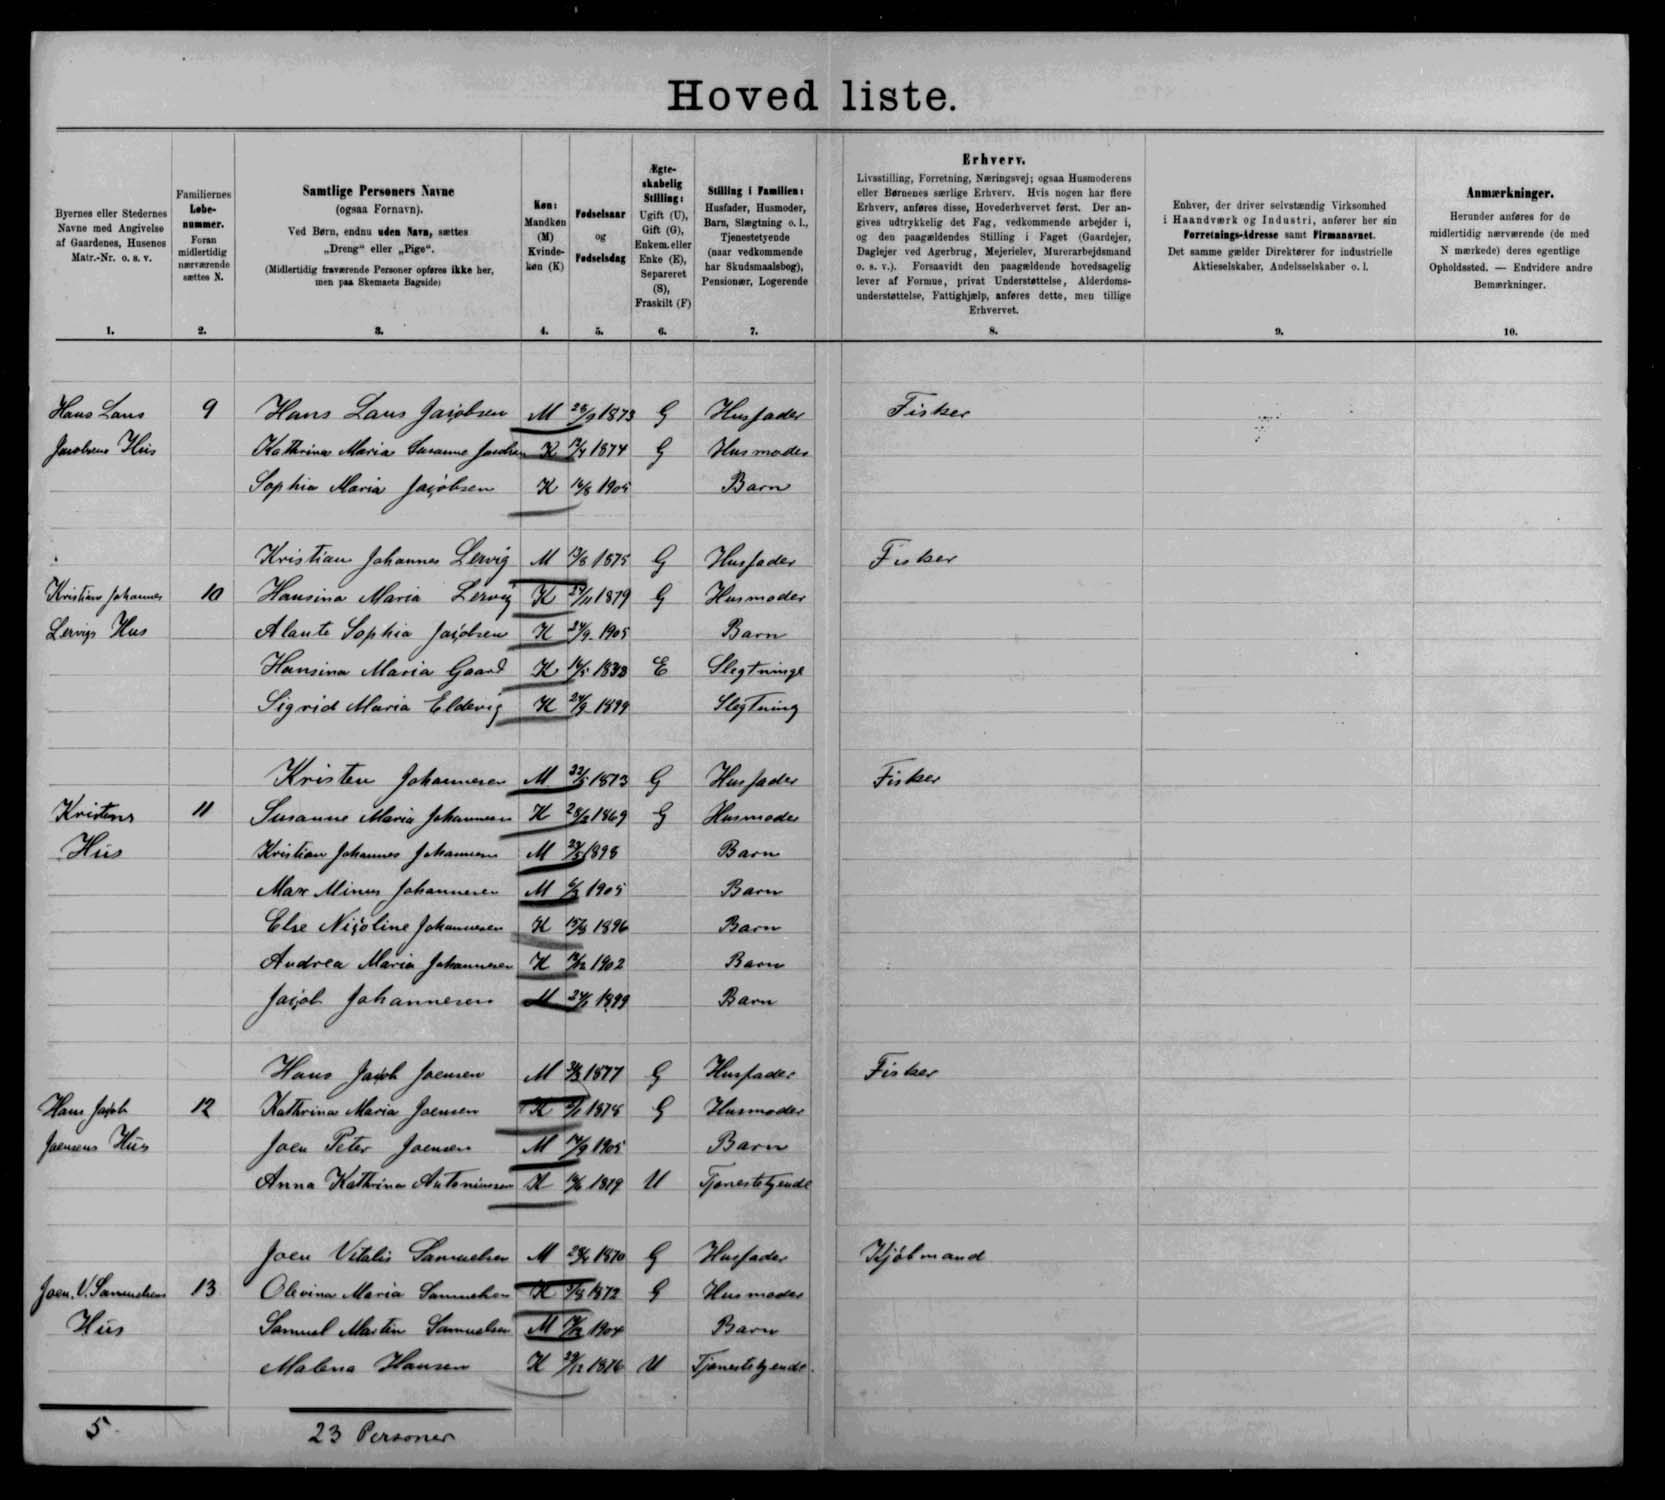 Hovedliste.
Byernes eller Stedernes
Navne med Angivelse
af Gaardenes, Husenes
Matr.-Nr. o. s. v.
1.
Familiernes
Løbe-
nummer.
Foran
midlertidig
nærværende
sættes N.
2.
Samtlige Personers Navne
(ogsaa Fornavn).
Ved Børn, endnu uden Navn, sættes
„Dreng“ eller „Pige“.
(Midlertidig fraværende Personer opføres ikke her,
men paa Skemaets Bagside)
3.
Køn:
Mandkøn
(M)
Kvinde-
køn (K)
4.
Fødselsaar
og
Fødselsdag
5.
Ægte-
skabelig
Stilling:
Ugift (U),
Gift (G),
Enkem. eller
Enke (E),
Separeret
(S),
Fraskilt (F)
6.
Stilling i Familien:
Husfader, Husmoder,
Barn, Slægtning o. l.,
Tjenestetyende
(naar vedkommende
har Skudsmaalsbog),
Pensionær, Logerende
7.
Erhverv.
Livsstilling, Forretning, Næringsvej; ogsaa Husmoderens
eller Børnenes særlige Erhverv. Hvis nogen har flere
Erhverv, anføres disse, Hovederhvervet først. Der an-
gives udtrykkelig det Fag, vedkommende arbejder i,
og den paagældendes Stilling i Faget (Gaardejer,
Daglejer ved Agerbrug, Mejerielev, Murerarbejdsmand
o. s. v.). Forsaavidt den paagældende hovedsagelig
lever af Formue, privat Understøttelse, Alderdoms-
understøttelse, Fattighjælp, anføres dette, men tillige
Erhvervet.
8.
Enhver, der driver selvstændig Virksomhed
i Haandværk og Industri, anfører her sin
Forretnings-Adresse samt Firmanavnet.
Det samme gælder Direktører for industrielle
Aktieselskaber, Andelsselskaber o. l.
9.
Anmærkninger.
Herunder anføres for de
midlertidig nærværende (de med
N mærkede) deres egentlige
Opholdssted. — Endvidere andre
Bemærkninger.
10.
Hans Laus 9 Hans Laus Jacobsen M 28/9 1873 G Husfader Fisker
Jacobsens Hus Kathrina Maria Susanne Jacobsen K 1874 G Husmoder
Sophia Maria Jacobsen K 16/8 1905 Barn
Kristian Johannes Lervig M 13/8 1875 G Husfader Fisker
Kristian Johannes 10 Hansina Maria Lervig K 1879 G Husmoder
Lervigs Hus Alante Sophia Jacobsen K 24/9 1905 Barn
Hansina Maria Gaard K 1838 E Slegtninge
Sigrid Maria Eldevig K 24/9 1899 Slegtning
Kristen Johannesen M 1873 G Husfader Fisker
Kristens 11 Susanne Maria Johannesen K 28/2 1869 G Husmoder
Hus Kristian Johannes Johannesen M 1898 Barn
Max Minus Johannesen M 1905 Barn
Else Nicoline Johannesen K 15/3 1896 Barn
Andrea Maria Johannesen K 1902 Barn
Jacob Johannesen M 24/1 1899 Barn
Hans Jacob Joensen M 1877 G Husfader Fisker
Hans Jacob 12 Kathrina Maria Joensen K 1878 G Husmoder
Joensens Hus Joen Peter Joensen M 1905 Barn
Anna Kathrina Antoniussen K 1879 U Tjenestetyende
Joen Vitalis Samuelsen M 1870 G Husfader Kjöbmand
Joen. V. Samuelsens 13 Olevina Maria Samuelsen K 1872 G Husmoder
Hus Samuel Martin Samuelsen M 1904 Barn
Malena Hansen K 29/12 1876 U Tjenestetyende.
5 23 Personer